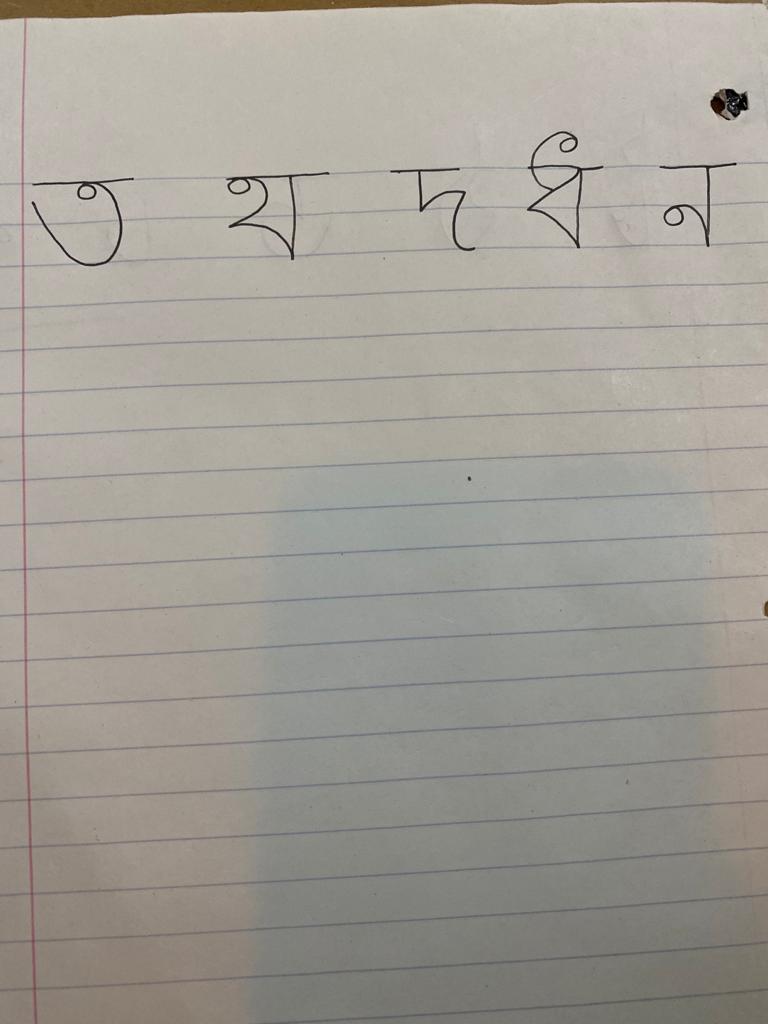 ত থ দ ধ ন